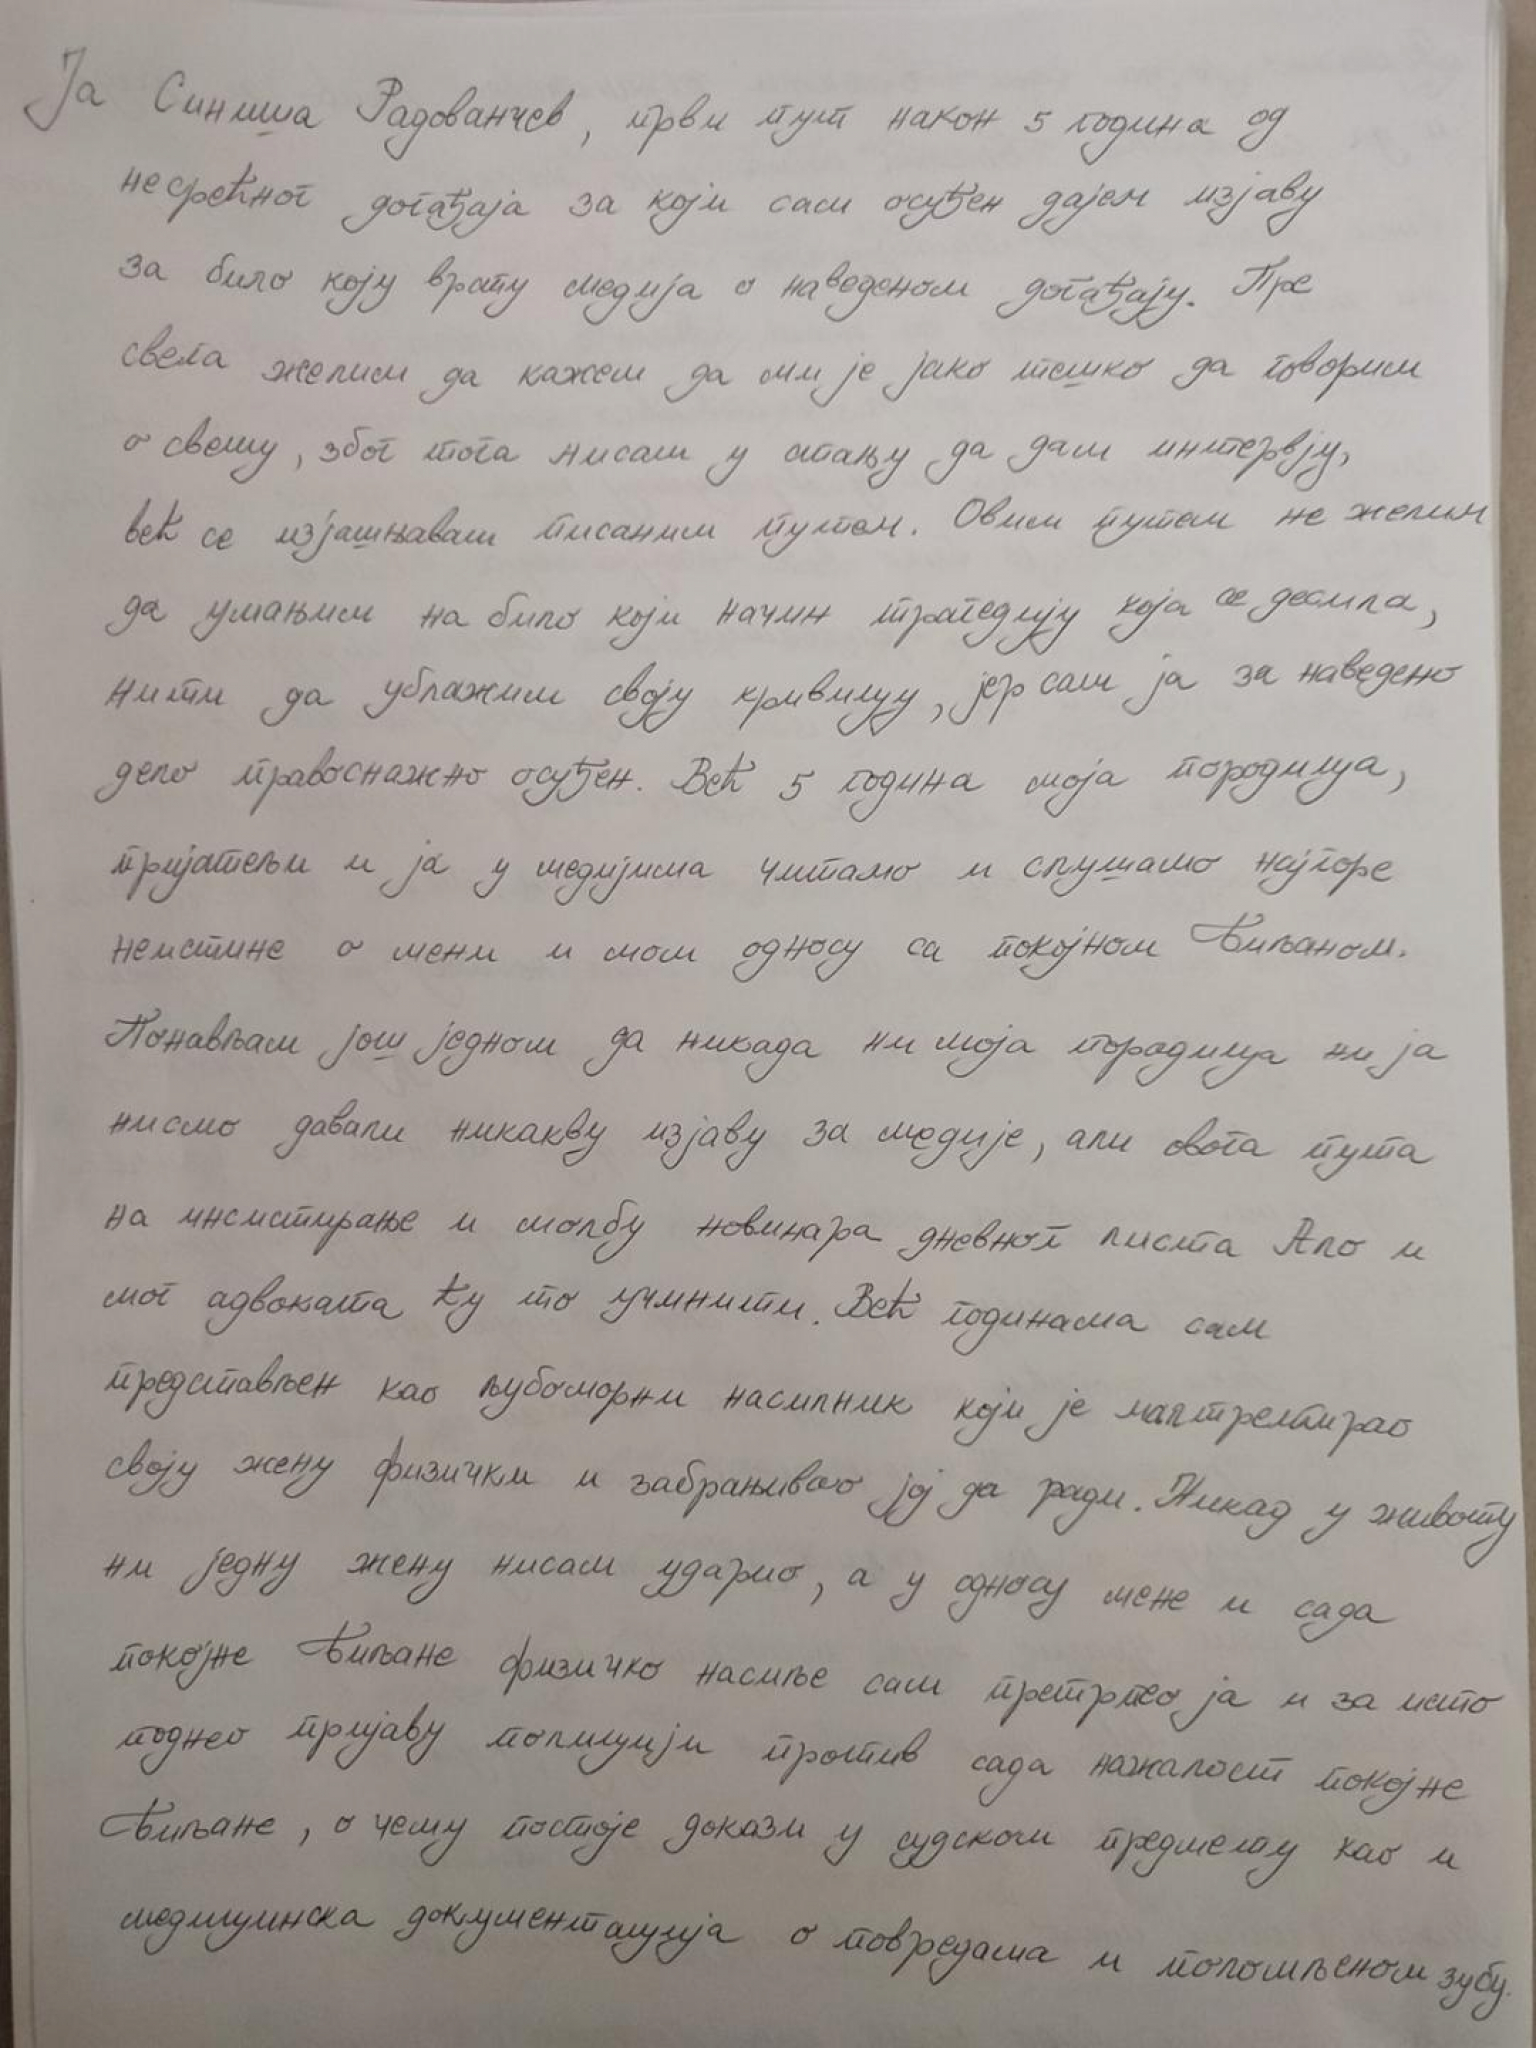 Ја Синиша Радованчев, први пут након 5 година од
несрећног догађаја за који сам осуђен дајем изјаву
за било коју врату медија о наведеном догађају. Пре
свега желим да кажем да ми је јако тешко да говорим
о свему, због тога нисам у стању да дам интервју,
већ се изјашњавам писаним путем. Овим путем не желим
да умањим на било који начин трагедију која се десила,
нити да ублажим своју кривицу, јер сам ја за наведено
дело правоснажно осуђен. Већ 5 година моја породица,
пријатељи и ја у медијима читамо и слушамо најгоре
неистине о мени и мом односу са покојном Биљаном.
Понављам још једном да никада ни моја породица ни ја
нисмо давали никакву изјаву за медије, али овога пута
на инсистирање и молбу новинара дневног листа Ало и
мог адвоката ћу то учинити. Већ годинама сам
представљен као љубоморни насилник који је малтретирао
своју жену физички и забрањивао јој да ради. Никад у животу
ни једну жену нисам ударио, а у односу мене и сада
покојне Биљане физичко насиље сам претрпео ја и за исто
поднео пријаву полицији против сада нажалост покојне
Биљане, о чему постоје докази у судском предмету као и
медицинска документација о повредама и поломљеном зубу.